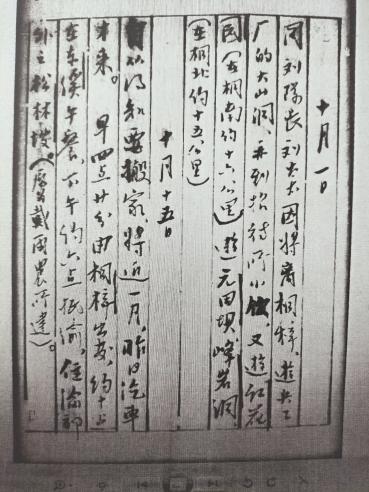 十月一日
同刘队长刘太太因将离桐梓，游兵工
厂的大山洞，并到招待所小饮，又游红花
园（在桐南约十六公里）游元田坝峰岩洞
（在桐北约十五公里）
十月十五日
自从得知要搬家将近一月，昨日汽车
才来。早四点廿分由桐梓出发，约十一点
在东溪午餐，下午约六点抵渝，住渝郊
外之松林坡（原为戴国农所建）。